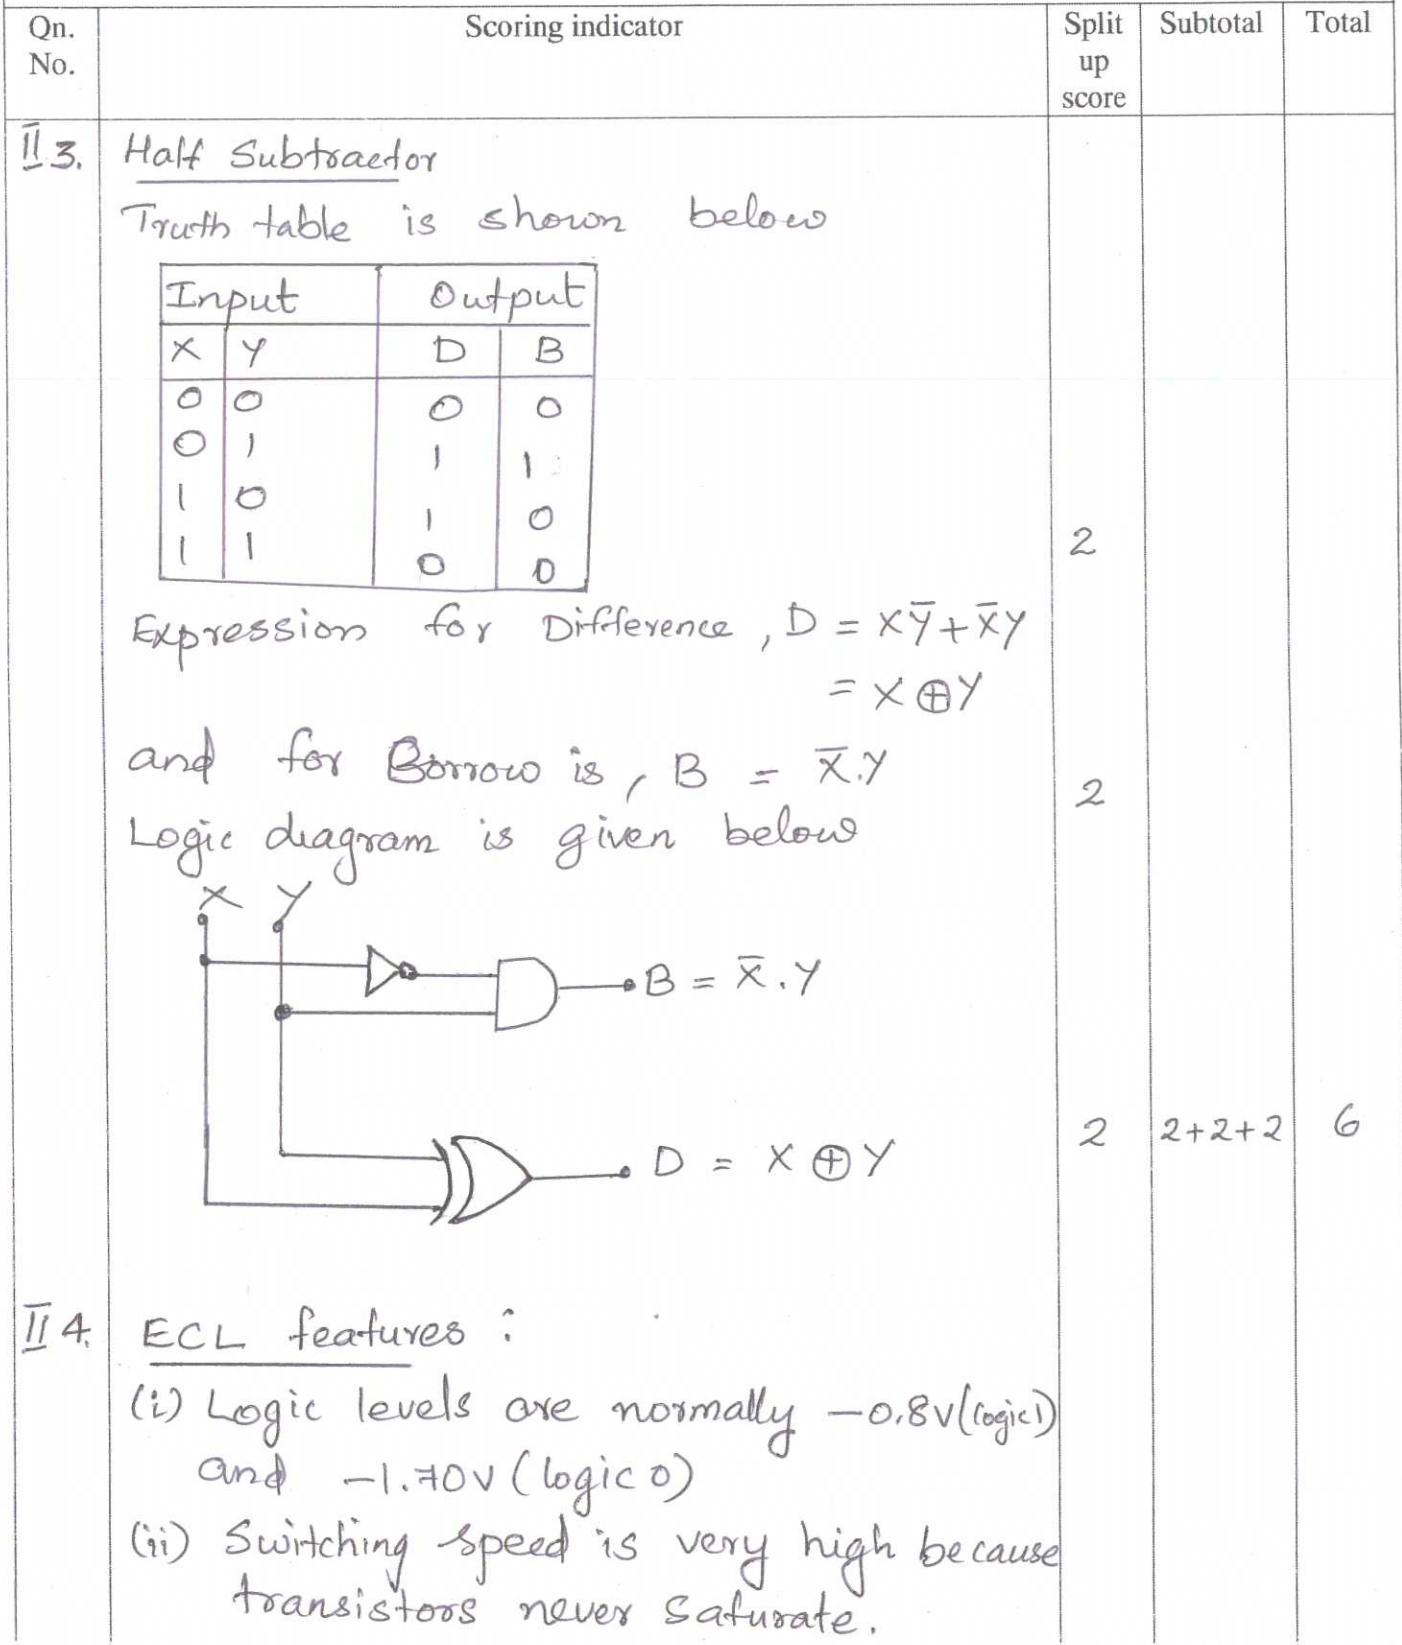 Qn. No. Scoring indicator Split up score Subtotal Total
II 3. Half Subtractor
Truth table is shown below
Input Output
X Y D B
0 0 0 0
0 1 1 1
1 0 1 0
1 1 0 0
2
Expression for Difference, D = XȲ + X̄Y
= X ⊕ Y
and for Borrow is, B = X̄.Y
2
Logic diagram is given below
X Y
B = X̄.Y
D = X ⊕ Y
2 2+2+2 6
II 4. ECL features :
(i) Logic levels are normally -0.8V (logic 1)
and -1.70V (logic 0)
(ii) Switching speed is very high because
transistors never saturate.